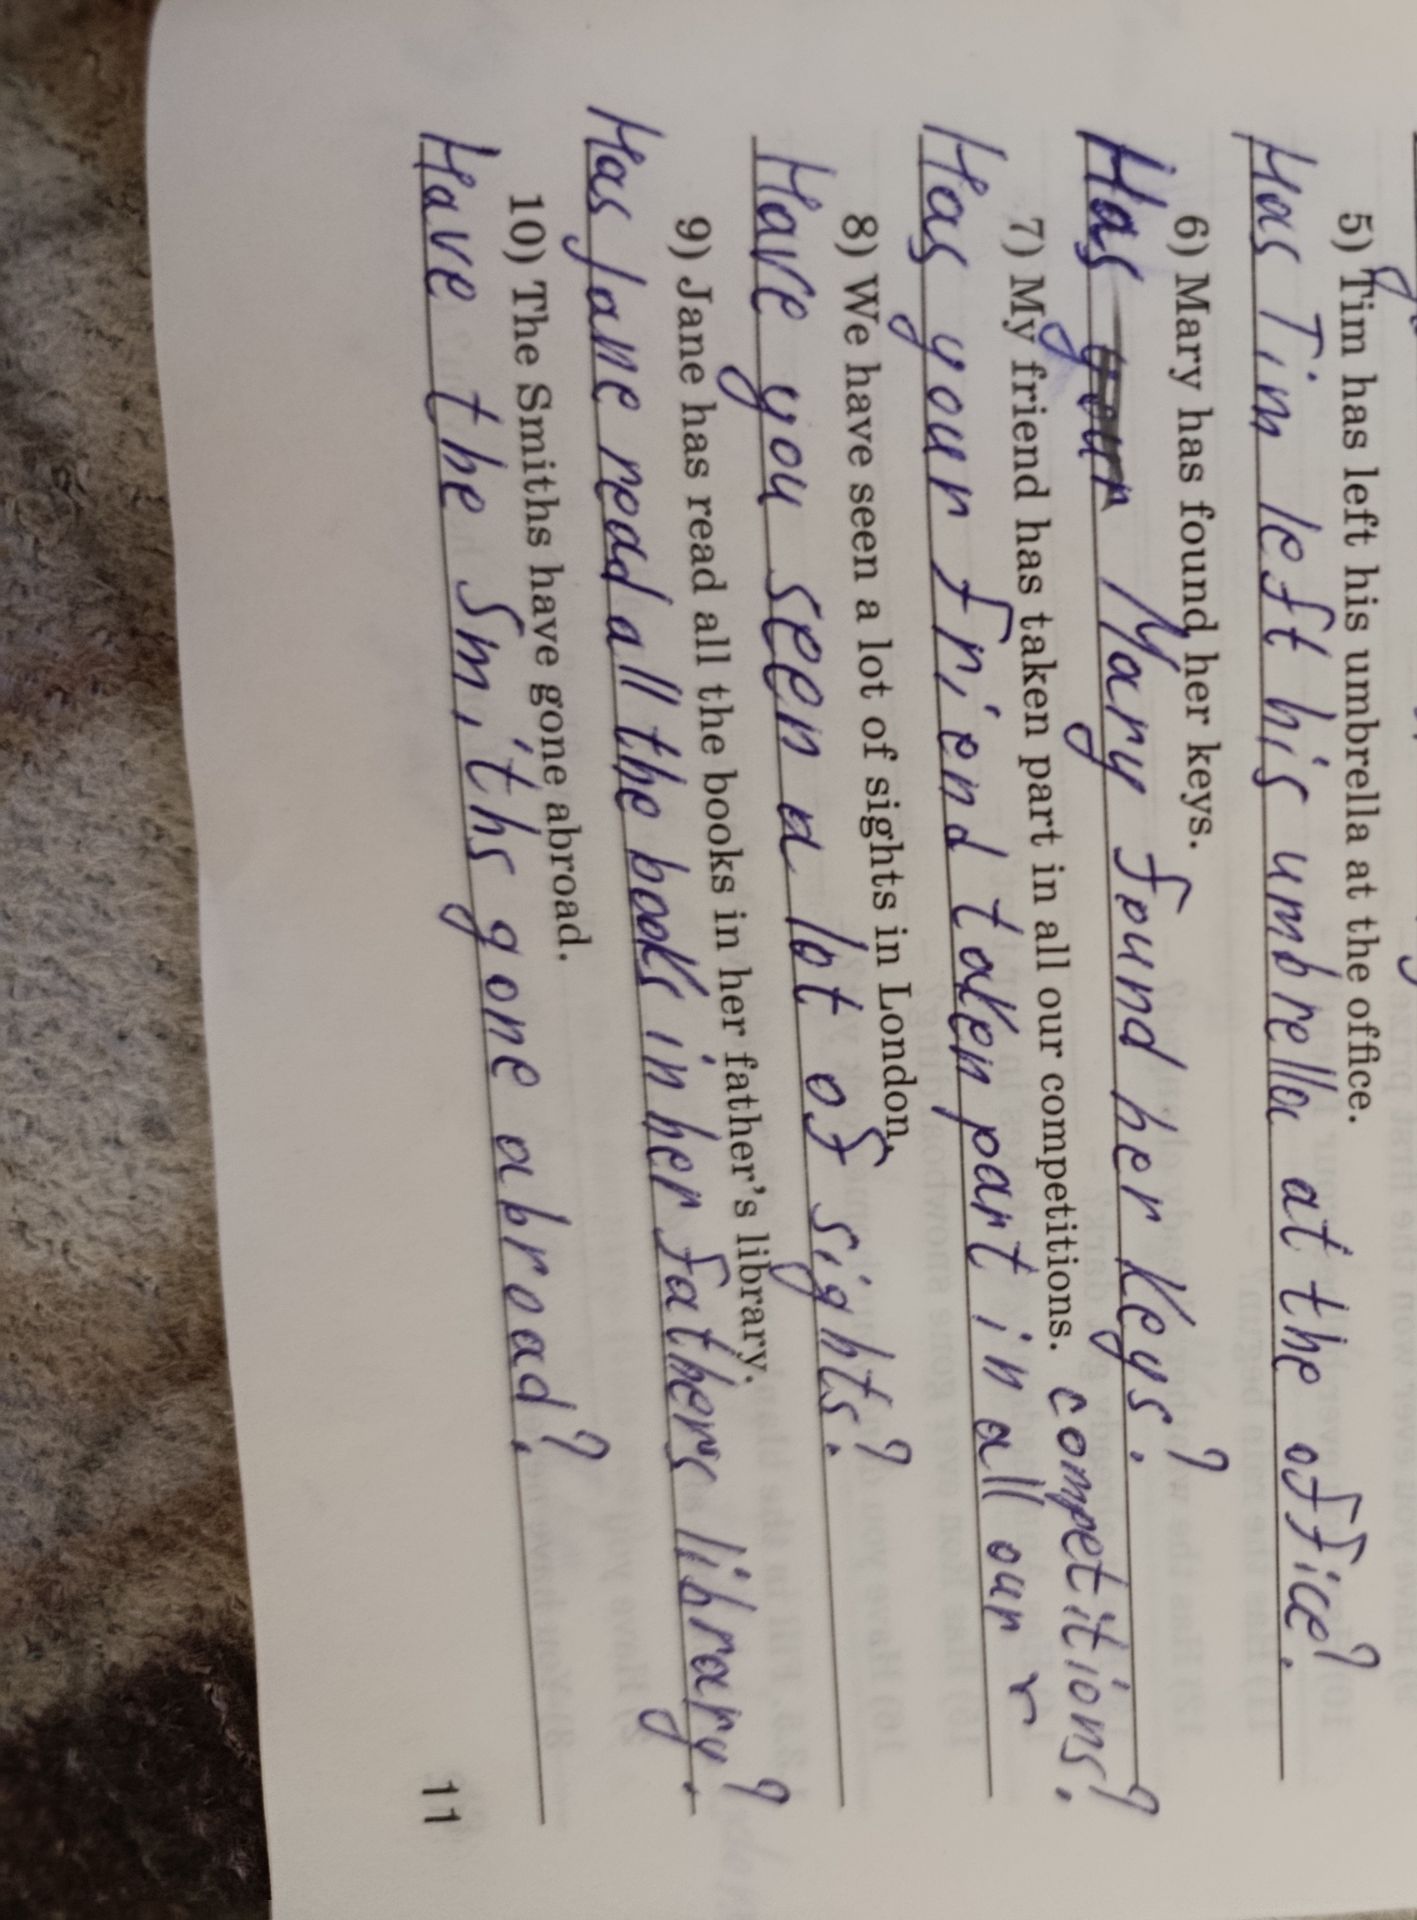 5) Tim has left his umbrella at the office.
Has Tim left his umbrella at the office?
6) Mary has found her keys.
Has your Mary found her keys?
7) My friend has taken part in all our competitions.
competitions?
Has your friend taken part in all our
8) We have seen a lot of sights in London.
Have you seen a lot of sights?
9) Jane has read all the books in her father's library.
Has Jane read all the books in her fathers library?
10) The Smiths have gone abroad.
Have the Smiths gone abroad?
11